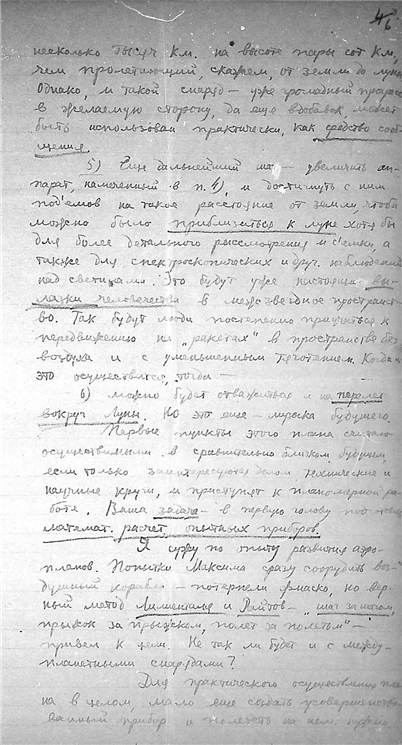 46
несколько тысяч км. на высоте пары сот км,
чем пролетающий, скажем, от земли до луны
Однако и такой снаряд – уже громадный прогресс
в желаемую сторону, да еще вдобавок, может
быть использован практически, как средство сооб-
щения.
5) Еще дальнейший шаг – увеличить ап-
парат, намеченный в п. 4), и достигнуть с ним
под'емов на такое расстояние от земли, чтобы
можно было приблизиться к луне хотя бы
для более детального рассмотрения и с'емки, а
также для спектроскопических и друг. наблюдений
над светилами. Это будут уже настоящие вы-
лазки человечества в межзвездное пространст-
во. Так будут люди постепенно приучаться к
передвижению на „ракетах" в пространстве без
воздуха и с уменьшенным тяготением. Когда
это осуществится, тогда –
6) можно будет отважиться и на перелет
вокруг Луны. Но это еще – музыка будущего.
Первые пункты этого плана считаю
осуществимыми в сравнительно близком будущем,
если только заинтересуются делом технические и
научные круги, и приступят к планомерной ра-
боте. Ваша задача – в первую голову
математ. расчет опытных приборов.
Я сужу по опыту развития аэро-
планов. Попытки Максима сразу соорудить воз-
душный корабль – потерпели фиаско, но вер-
ный метод Лилиенталя и Райтов – „шаг за шагом,
прыжок за прыжком, полет за полетом" –
привел к цели. Не так ли будет и с меж-
планетными снарядами?
Для практического осуществления пла-
на в целом, мало еще создать усовершенство-
ванный прибор и полететь на нем. нужно